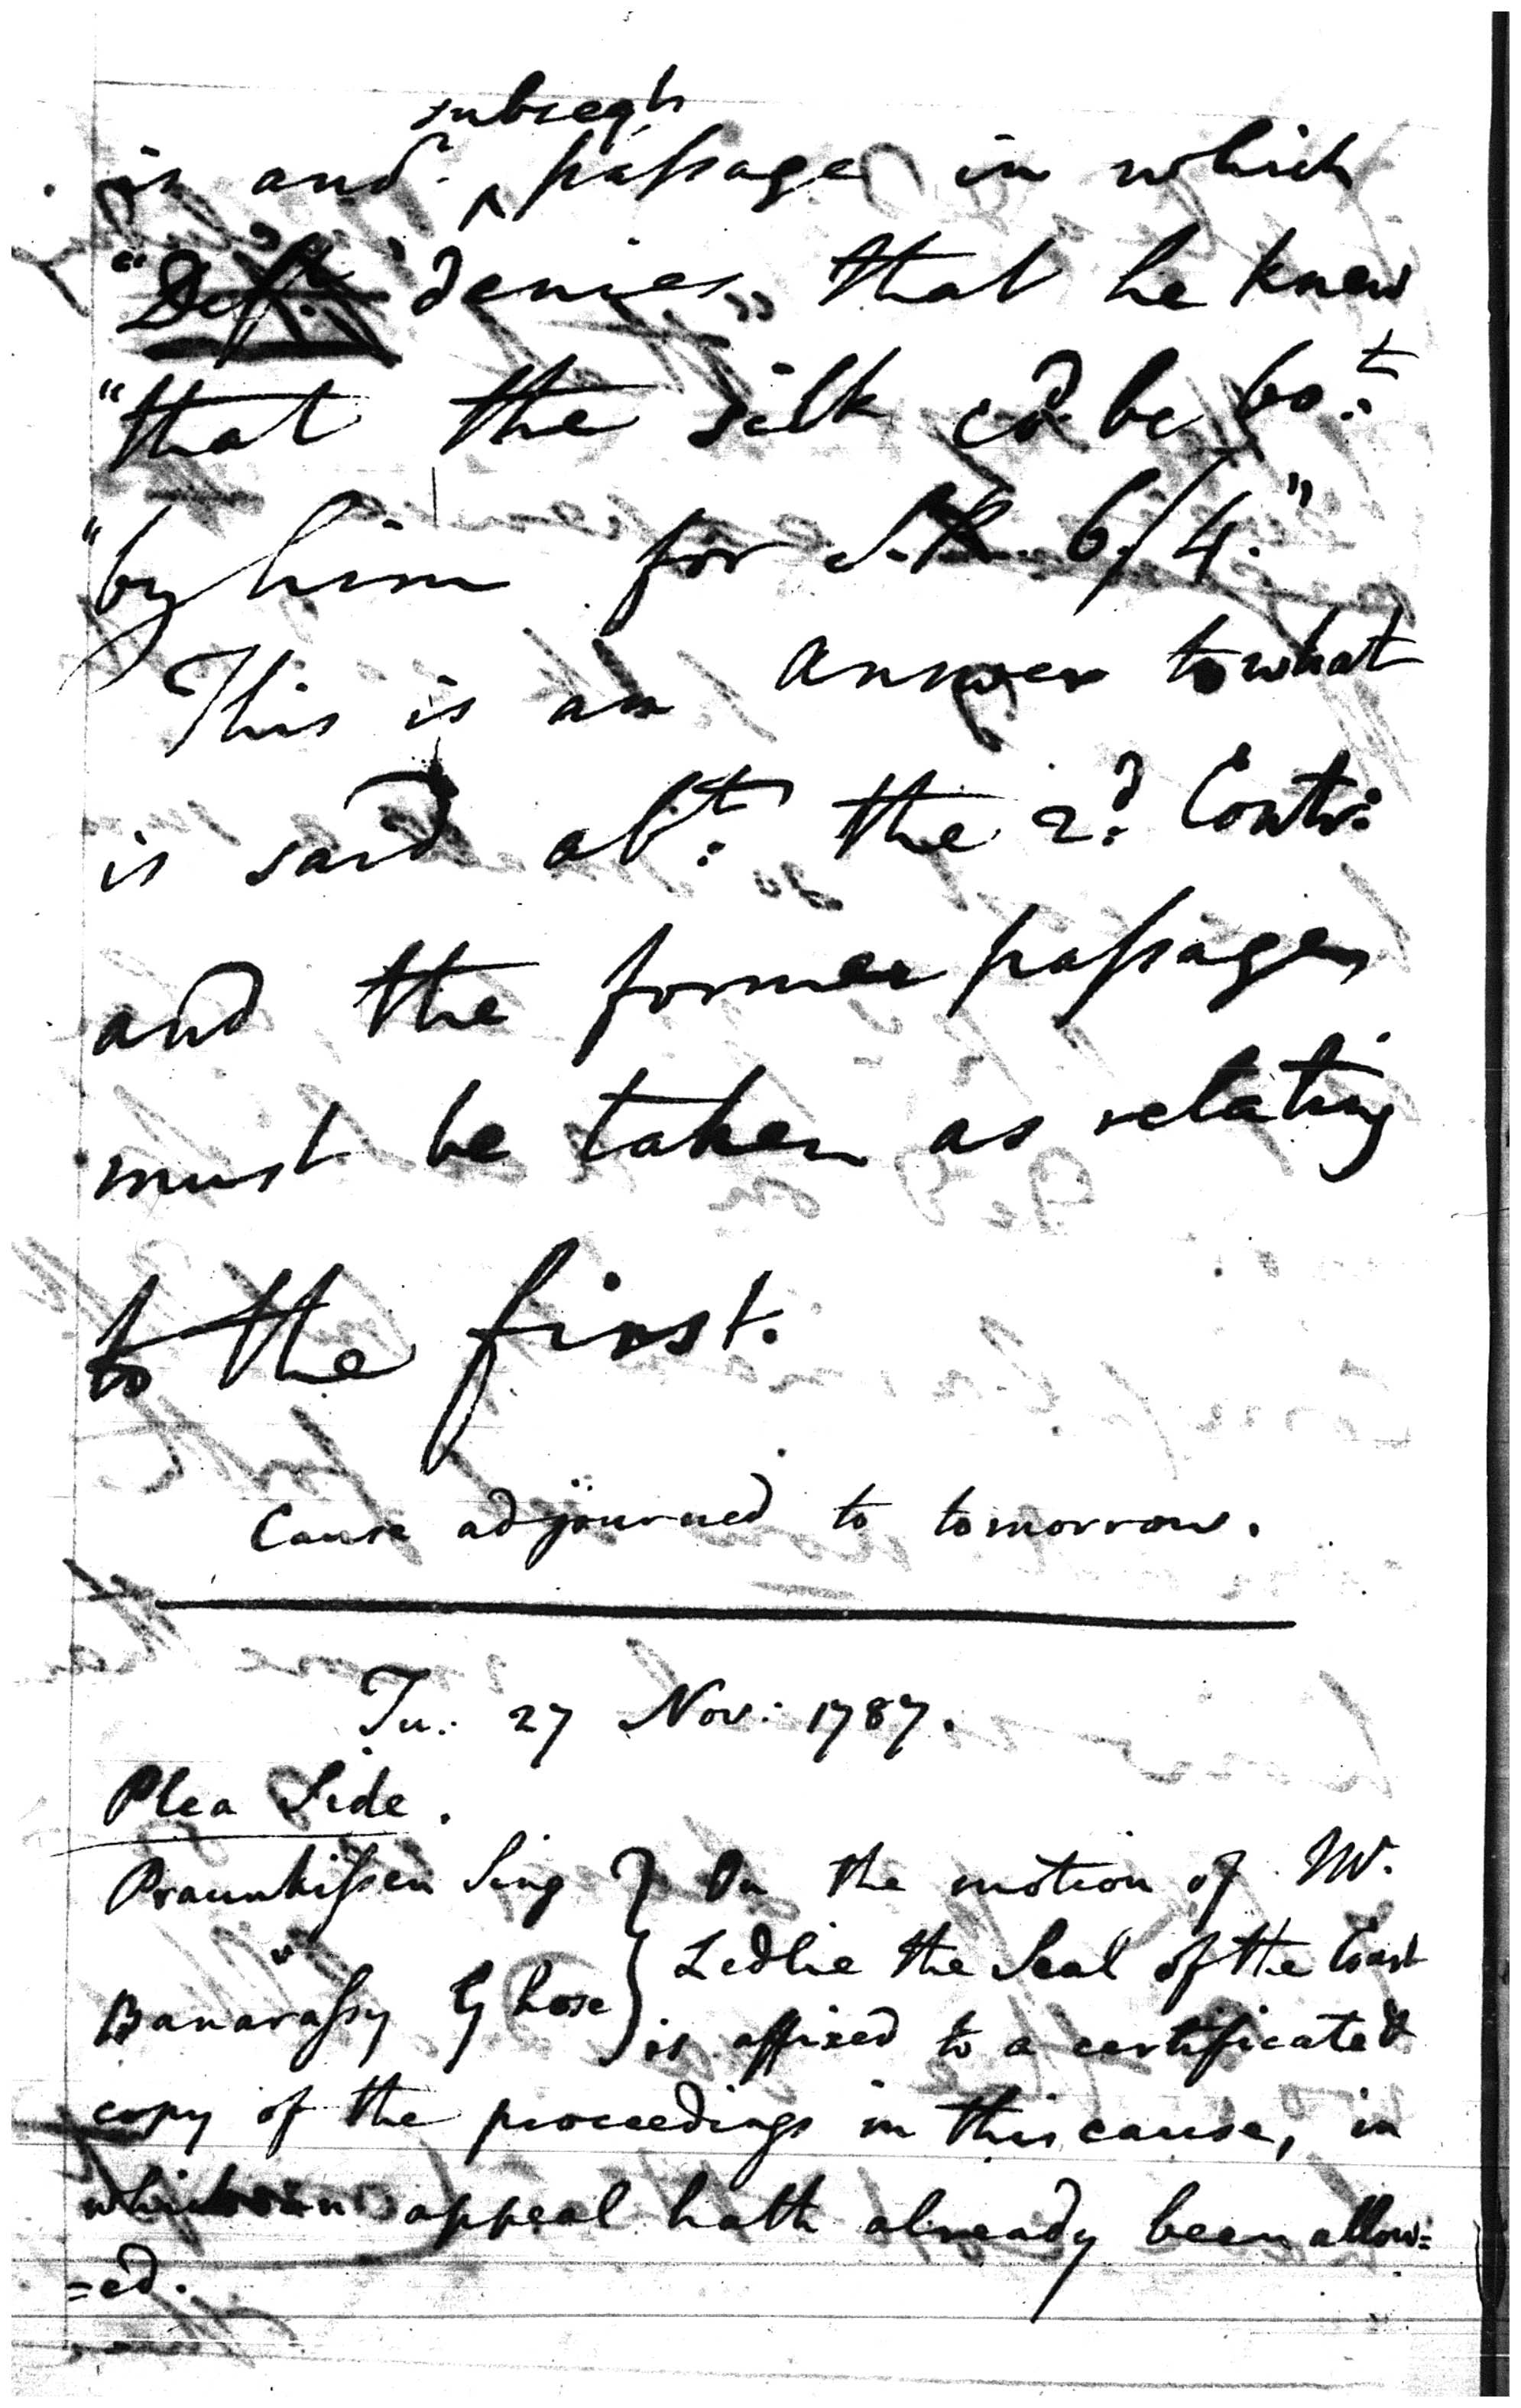 subseqt
is and. ^ passage in which
"Deft. denies" that he knew
"that the silk cd. be bo.t
"by him for S.R. 6/4."
This is an answer to what
is said abt: the 2d. Contr:
and the former passages
must be taken as relating
to the first.
Cause adjourned to tomorrow.
Tu: 27 Nov: 1787.
Plea Side.
Praunkissen Sing } On the motion of Mr.
v
Banarassy Ghose } Ledlie the Seal of the Court
is affixed to a certificated
copy of the proceedings in this cause, in
which an appeal hath already been allow=
=ed.